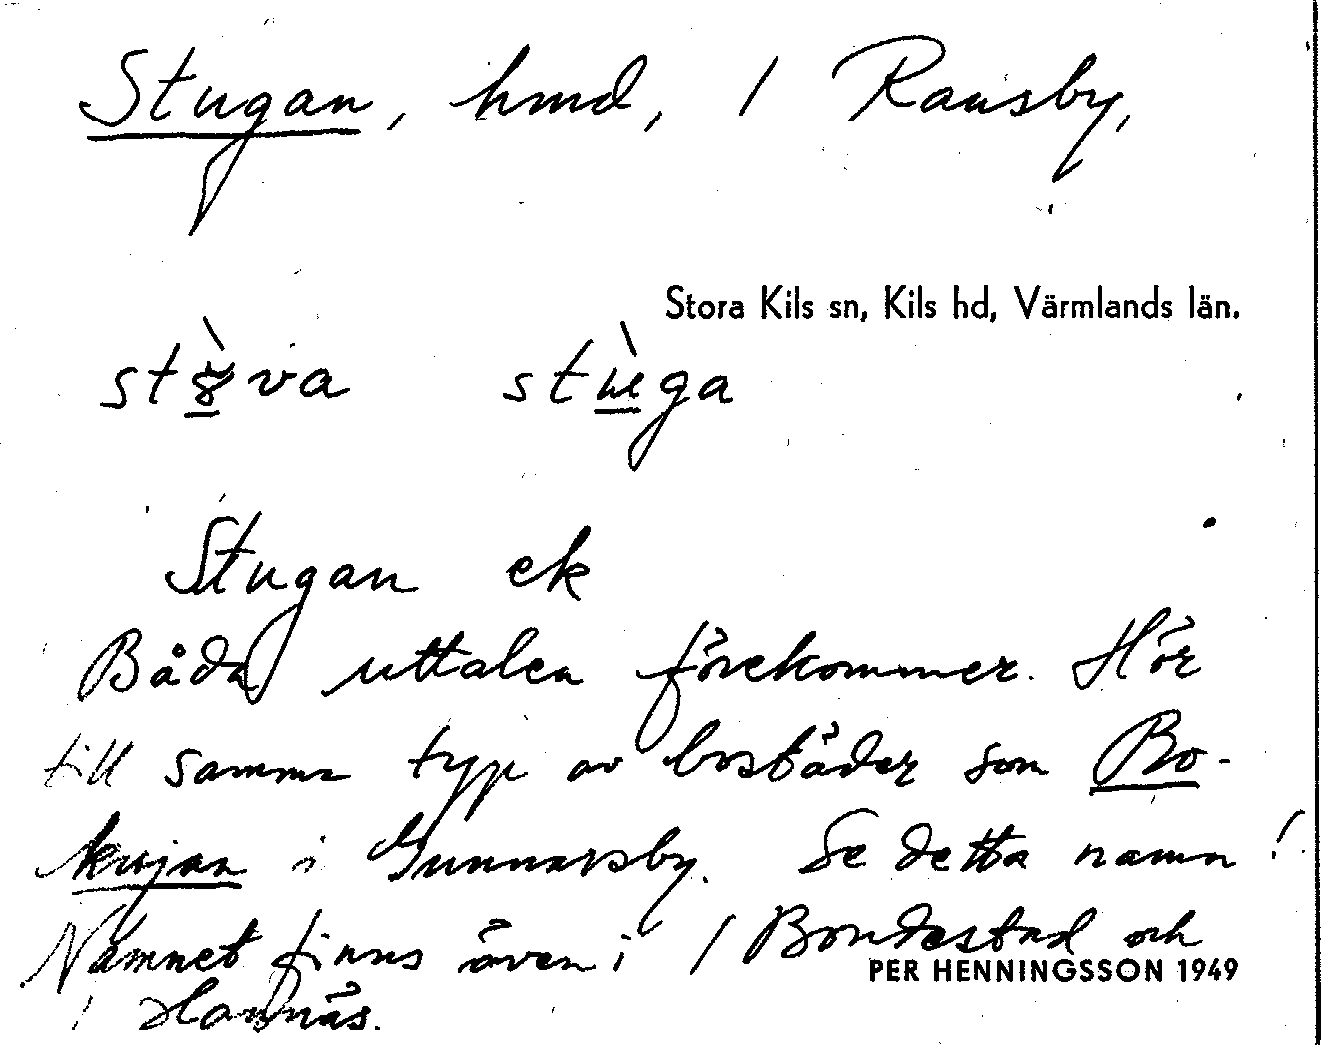 Stugan, hmd, / Ransby,
Stora Kils sn, Kils hd, Värmlands län.
stuga
Stugan ek
Båda uttalen förekommer. Hör
till samma typ av bostäder som Bo-
kojan i Gunnarsby. Se detta namn!
Namnet finns även i / Bondestad och
PER HENNINGSSON 1949
/ Hannäs.